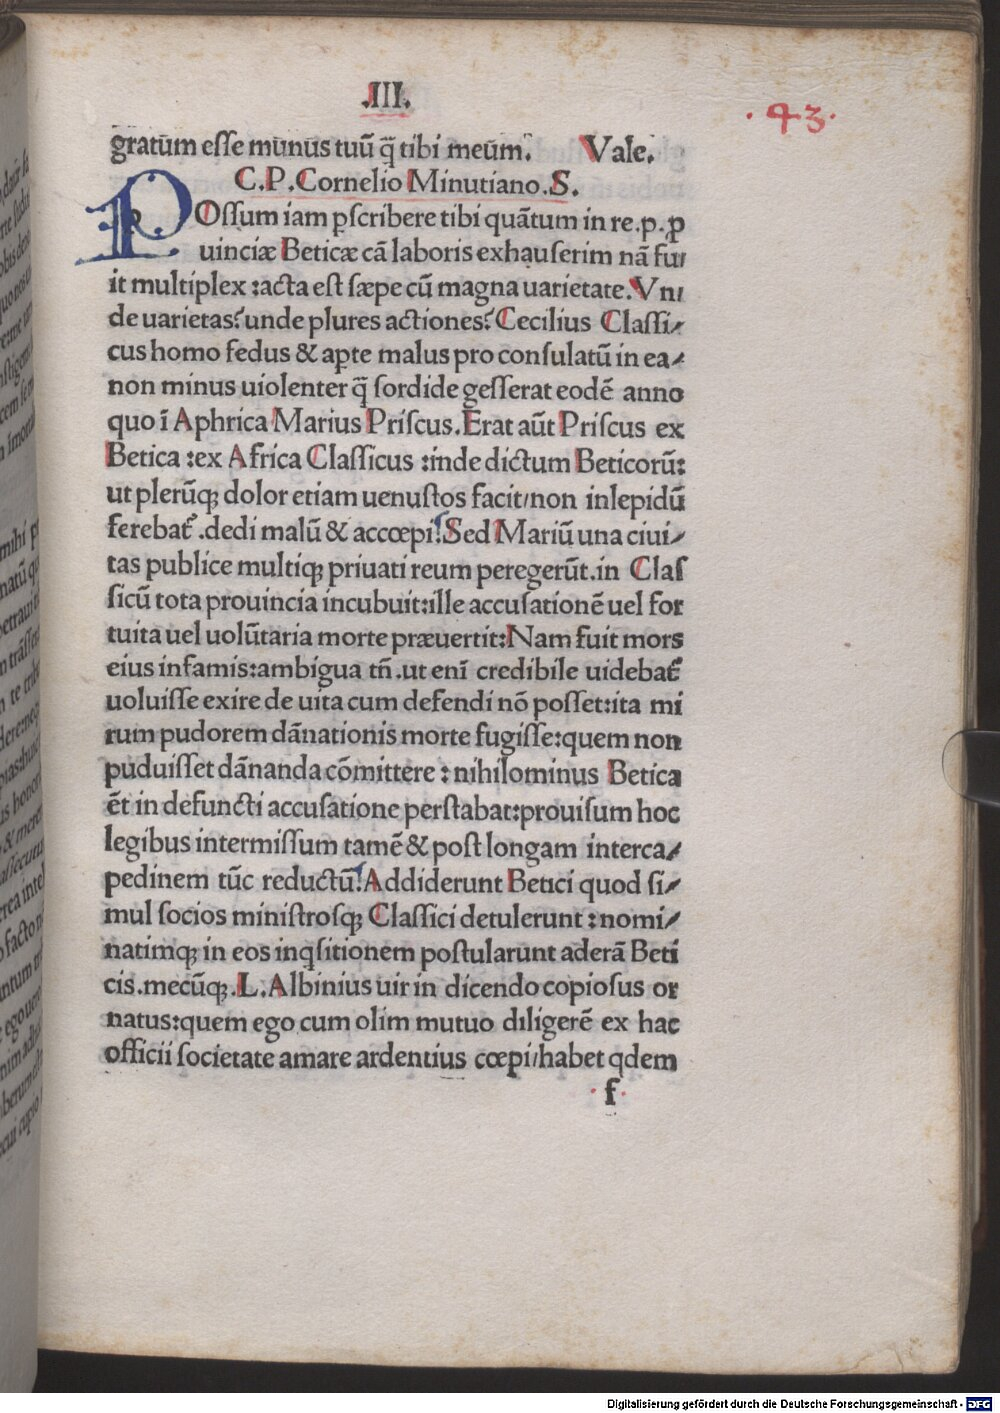 .III.
.43.
gratum esse munus tuũ q̃ tibi meũm. Vale.
C.P.Cornelio Minutiano.S.
POssum iam ꝑscribere tibi quãtum in re.p.ꝓ
uinciæ Beticæ cã laboris exhauserim nã fu/
it multiplex :acta est sæpe cũ magna uarietate.Vn/
de uarietas?unde plures actiones?Cecilius Classi/
cus homo fedus & aꝑte malus pro consulatũ in ea/
non minus uiolenter q̃ sordide gesserat eodẽ anno
quo ĩ Aphrica Marius Priscus.Erat aũt Priscus ex
Betica :ex Africa Classicus :inde dictum Beticorũ:
ut plerũqꝫ dolor etiam uenustos facit/non inlepidũ
ferebat᷑ .dedi malũ & accœpi!Sed Mariũ una ciui/
tas publice multiqꝫ priuati reum peregerũt.in Clas
sicũ tota prouincia incubuit:ille accusationẽ uel for
tuita uel uolũtaria morte præuertit:Nam fuit mors
eius infamis:ambigua tñ.ut enĩ credibile uidebat᷑
uoluisse exire de uita cum defendi nõ posset:ita mi
rum pudorem dãnationis morte fugisse:quem non
puduisset dãnanda cõmittere : nihilominus Betica
ẽt in defuncti accusatione perstabat:prouisum hoc
legibus intermissum tamẽ & post longam interca/
pedinem tũc reductũ!Addiderunt Betici quod si/
mul socios ministrosqꝫ Classici detulerunt : nomi/
natimqꝫ in eos inqsitionem postularunt aderã Beti
cis.mecũqꝫ.L.Albinius uir in dicendo copiosus or
natus:quem ego cum olim mutuo diligerẽ ex hac
officii societate amare ardentius cœpi/habet qdem
f
Digitalisierung gefördert durch die Deutsche Forschungsgemeinschaft - DFG